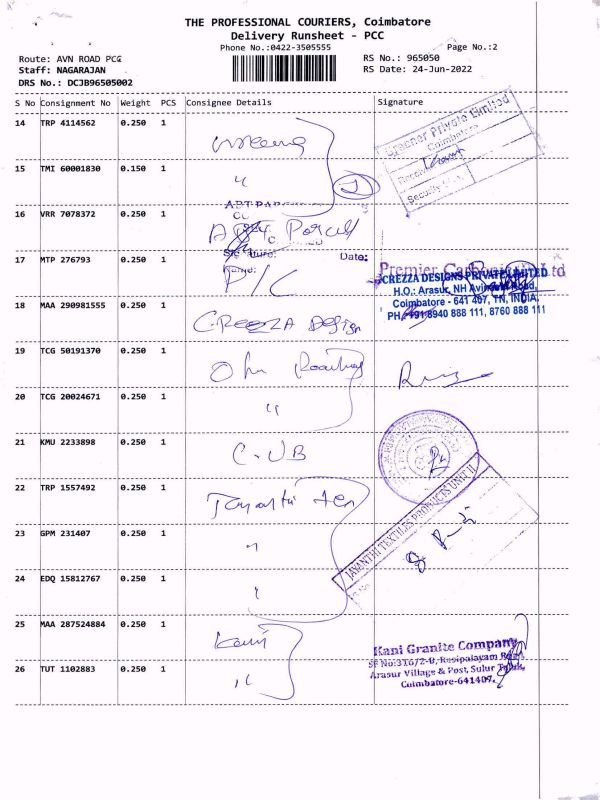 THE PROFESSIONAL COURIERS, Coimbatore
Delivery Runsheet - PCC
Phone No.:0422-3505555
Page No.:2
Route: AVN ROAD PCC
RS No.: 965050
Staff: NAGARAJAN
RS Date: 24-Jun-2022
DRS No.: DCJB96505002
S No Consignment No Weight PCS Consignee Details Signature
14 TRP 4114562 0.250 1
Private Limited
Coimbatore
Security
15 TMI 60001830 0.150 1 "
16 VRR 7078372 0.250 1 Parcel
Date:
17 MTP 276793 0.250 1 D/C
Premier
CREZZA DESIGNS PRIVATE LIMITED
H.O.: Arasur, NH Avinashi Road,
Coimbatore - 641 407, TN, INDIA.
PH.+91 8940 888 111, 8760 888 111
18 MAA 290981555 0.250 1 CREEZA DESIGN
19 TCG 50191370 0.250 1 Ohm
20 TCG 20024671 0.250 1 "
21 KMU 2233898 0.250 1 C.UB
22 TRP 1557492 0.250 1
JAYANTHI TEXTILES PRODUCTS UNIT II
23 GPM 231407 0.250 1 "
24 EDQ 15812767 0.250 1
25 MAA 287524884 0.250 1 Kani
Kani Granite Company
SF No:316/2-B, Rasipalayam Road,
Arasur Village & Post, Sulur Taluk,
Coimbatore-641407.
26 TUT 1102883 0.250 1 "